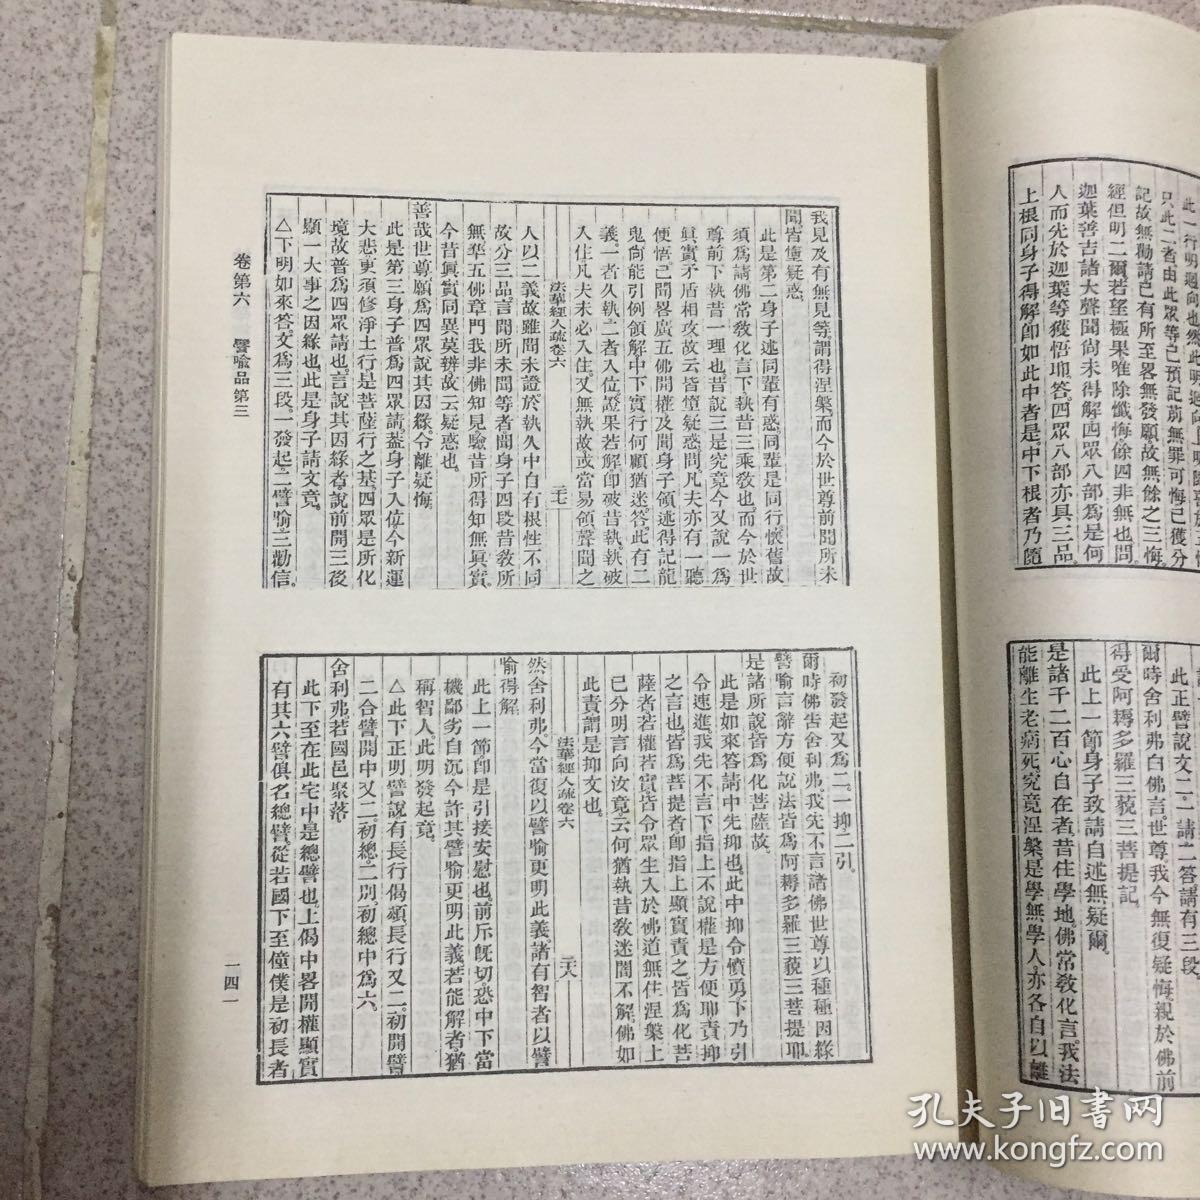 此一行明迴向也然此明迴
只此二者由此眾等已預記前無罪可悔已獲分
記故無勸請已有所至畧無發願故無餘之三悔
經但明二爾若望極果唯除懺悔餘四非無也問
迦葉善吉諸大聲聞尚未得解四眾八部為是何
人而先於迦葉等獲悟耶答四眾八部亦具三品
上根同身子得解即如此中者是中下根者乃隨
此正譬說文二一請二答請有三段
爾時舍利弗白佛言世尊我今無復疑悔親於佛前
得受阿耨多羅三藐三菩提記
此上一節身子致請自述無疑爾
是諸千二百心自在者昔住學地佛常教化言我法
能離生老病死究竟涅槃是學無學人亦各自以離
我見及有無見等謂得涅槃而今於世尊前聞所未
聞皆墮疑惑
此是第二身子述同輩有惑同輩是同行懷舊故
須為請佛常教化言下執昔三乘教也而今於世
尊前下執昔一理也昔說三是究竟今又說一為
眞實矛盾相攻故云皆墮疑惑問凡夫亦有一聽
便悟已聞畧廣五佛開權及聞身子領述得記龍
鬼尚能引例領解中下實行何顧猶迷答此有二
義一者久執二者入位證果若解即破昔執執破
入住凡夫未必入住又無執故或當易領聲聞之
法華經入疏卷六 二七
人以二義故雖聞未證於執久中自有根性不同
故分三品言聞所未聞等者聞身子四段昔教所
無準五佛章門我非佛知見驗昔所得知無眞實
今昔眞實同異莫辨故云疑惑也
善哉世尊願為四眾說其因緣令離疑悔
此是第三身子普為四眾請蓋身子入位今新運
大悲更須修淨土行是菩薩行之基四眾是所化
境故普為四眾請也言說其因緣者說前開三後
顯一大事之因緣也此是身子請文竟
△下明如來答文為三段一發起二譬喻三勸信
初發起又為二一抑二引
爾時佛告舍利弗我先不言諸佛世尊以種種因緣
譬喻言辭方便說法皆為阿耨多羅三藐三菩提耶
是諸所說皆為化菩薩故
此是如來答請中先抑也此中抑令憤勇下乃引
令速進我先不言下指上不說權是方便耶責抑
之言也皆為菩提者即指上顯實責之皆為化菩
薩者若權若實皆令眾生入於佛道無住涅槃上
已分明言向汝竟云何猶執昔教迷闇不解佛如
此責謂是抑文也
法華經入疏卷六 二八
然舍利弗今當復以譬喻更明此義諸有智者以譬
喻得解
此上一節即是引接安慰也前斥旣切恐中下當
機鄙劣自沉今許其譬喻更明此義若能解者猶
稱智人此明發起竟
△此下正明譬說有長行偈頌長行又二初開譬
二合譬開中又二初總二別初總中為六
舍利弗若國邑聚落
此下至在此宅中是總譬也上偈中畧開權顯實
有其六譬俱名總譬從若國下至僮僕是初長者
卷第六 譬喻品第三
一四一
孔夫子旧书网
www.kongfz.com